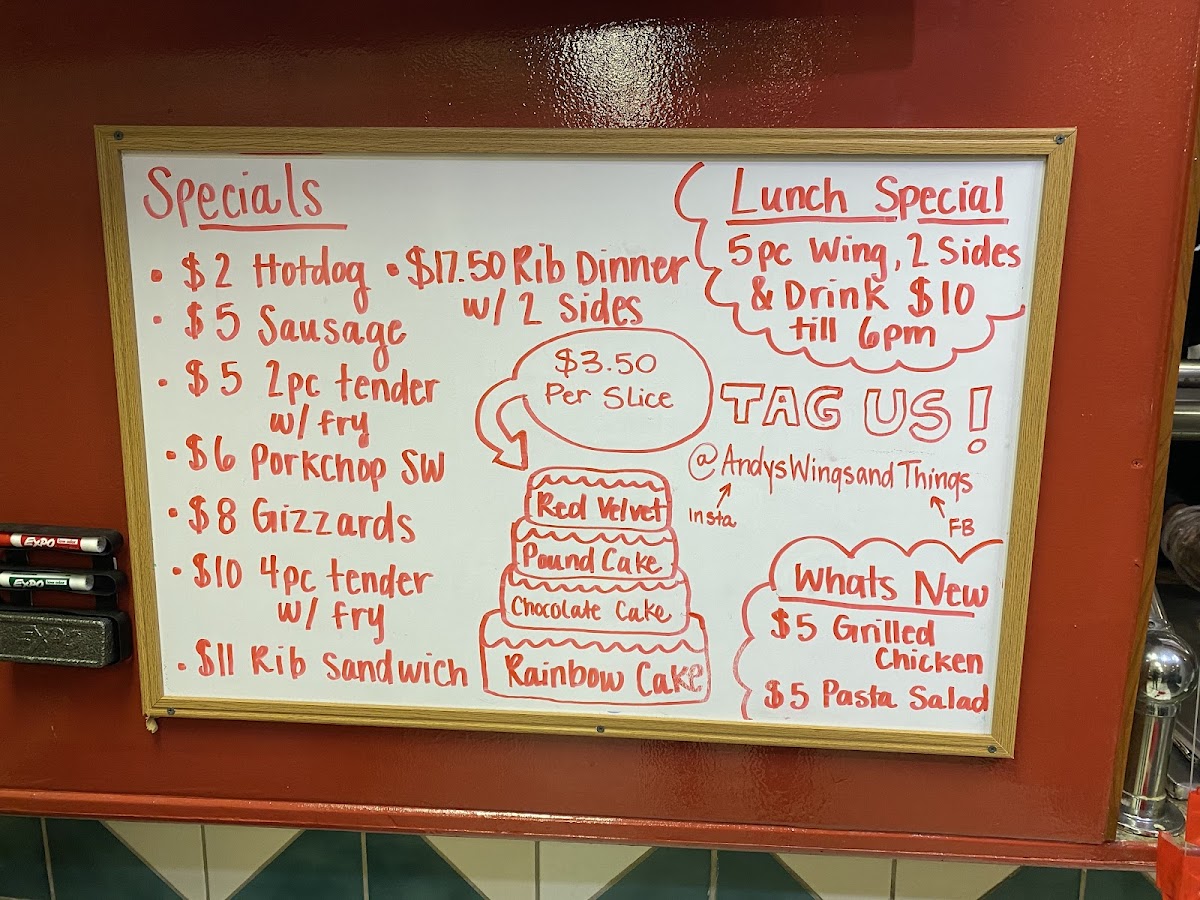 Specials
• $2 Hotdog
• $5 Sausage
• $5 2pc tender
w/ fry
• $6 Porkchop SW
• $8 Gizzards
• $10 4pc tender
w/ fry
• $11 Rib Sandwich
• $17.50 Rib Dinner
w/ 2 Sides
$3.50
Per Slice
Red Velvet
Pound Cake
Chocolate Cake
Rainbow Cake
Lunch Special
5pc Wing, 2 Sides
& Drink $10
till 6pm
TAG US!
@AndysWingsandThings
Insta
FB
Whats New
$5 Grilled
Chicken
$5 Pasta Salad
EXPO
EXPO
EXPO